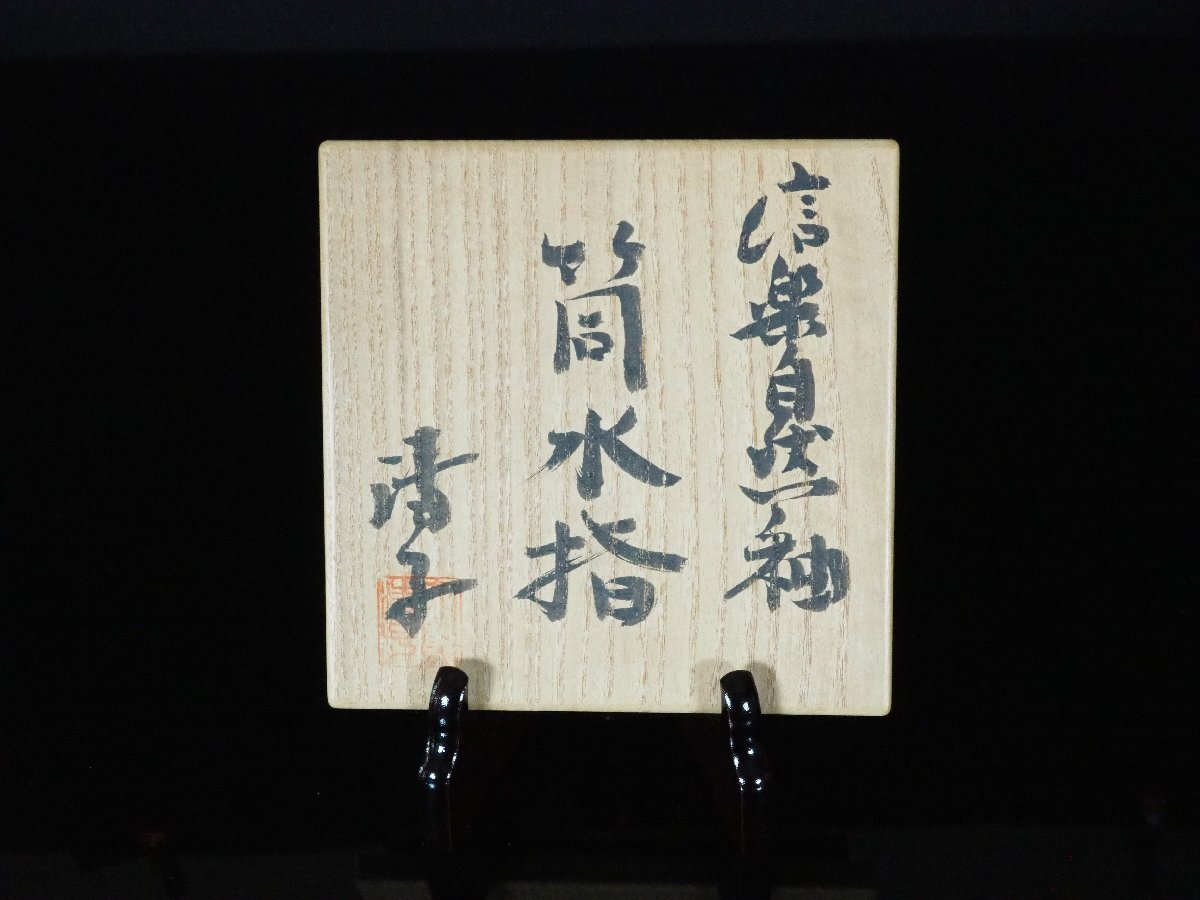 信楽自然釉
筒水指
清子